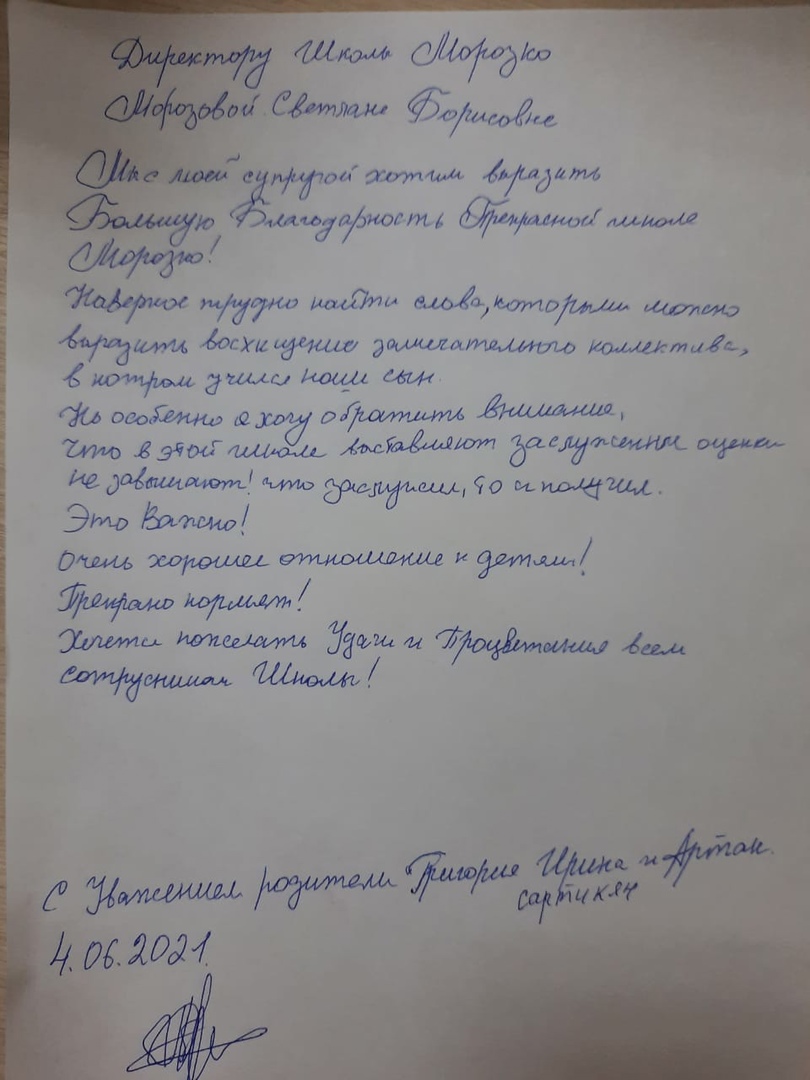 Директору Школы Морозко
Морозовой Светлане Борисовне
Мы с моей супругой хотим выразить
Большую Благодарность Прекрасной школе
Морозко!
Наверное трудно найти слова, которыми можно
выразить восхищение замечательного коллектива,
в котром учился наш сын.
Но особенно я хочу обратить внимание,
Что в этой школе выставляют заслуженные оценки
не завышают! что заслужил, то и получил.
Это Важно!
Очень хорошее отношение к детям!
Прекрано кормят!
Хочется пожелать Удачи и Процветания всем
сотрусникам Школы!
С Уважением родители Григория Ирина и Артак.
сартикян
4.06.2021.